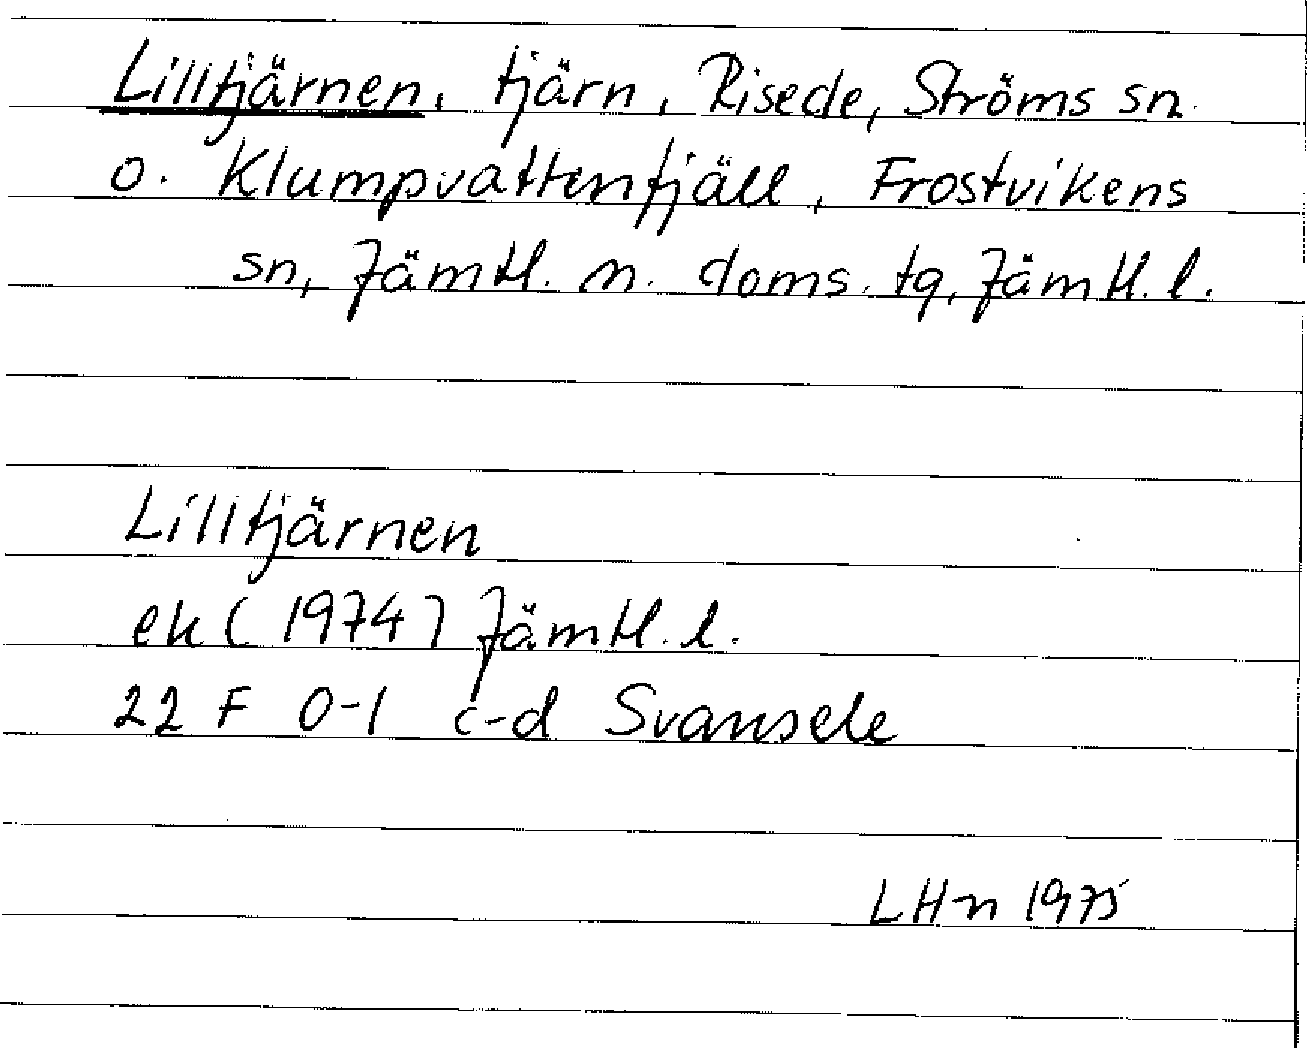 Lilltjärnen, tjärn, Risede, Ströms sn.
o. Klumpvattenfjäll, Frostvikens
sn, Jämtl. n. doms. tg, Jämtl. l.
Lilltjärnen
ek (1974) Jämtl. l.
22 F 0-1 c-d Svansele
LHn 1975